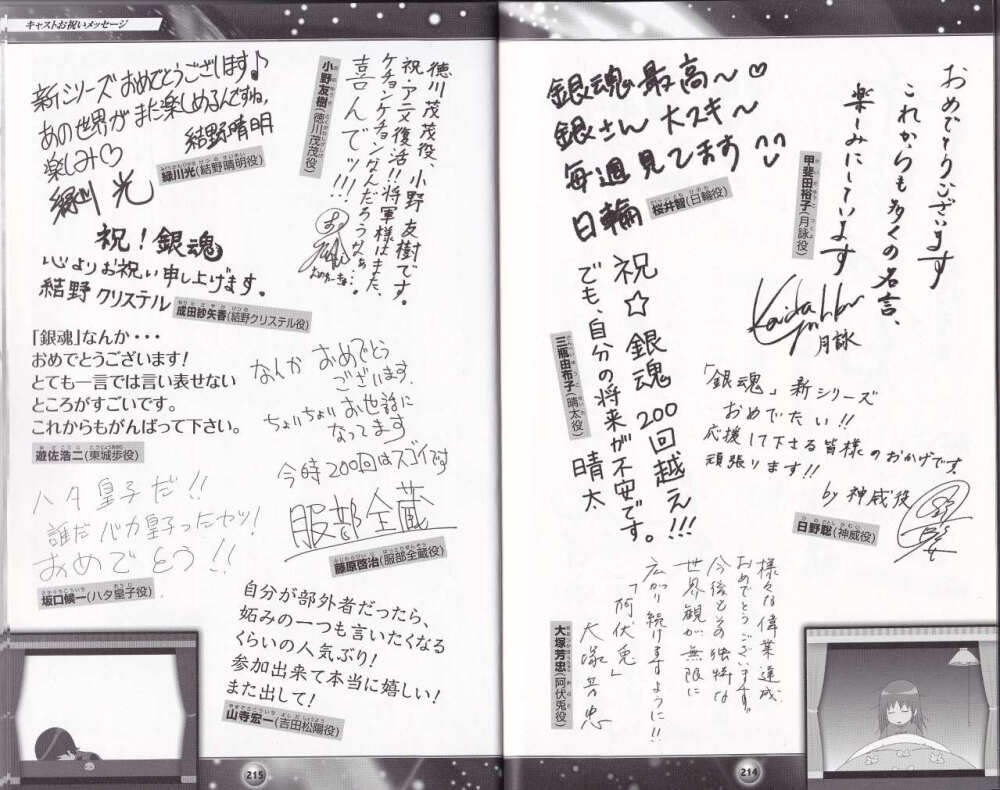 おめでとうございます
これからも多くの名言、
楽しみにしています
月詠
甲斐田裕子(月詠役)
銀魂最高〜♡
銀さん大スキ〜
毎週見てます
日輪
桜井智(日輪役)
祝☆銀魂200回越え!!!
でも、自分の将来が不安です。
晴太
三瓶由布子(晴太役)
「銀魂」新シリーズ
おめでたい!!
応援して下さる皆様のおかげです。
頑張ります!!
by 神威役
日野聡(神威役)
様々な偉業達成
おめでとうございます。
今後もその独特な
世界観が無限に
広がり続けますように!!
「阿伏兎」
大塚芳忠
大塚芳忠(阿伏兎役)
214
キャストお祝いメッセージ
徳川茂茂役、小野友樹です。
祝・アニメ復活!!将軍様はまた、
ケチョンケチョンなんだろうなぁ…。
喜んでッ!!!
小野友樹(徳川茂茂役)
新シリーズおめでとうございます♪
あの世界がまた楽しめるんですね。
楽しみ♡
結野晴明
緑川光
緑川光(結野晴明役)
祝!銀魂
心よりお祝い申し上げます。
結野クリステル
成田紗矢香(結野クリステル役)
「銀魂」なんか・・・
おめでとうございます!
とても一言では言い表せない
ところがすごいです。
これからもがんばって下さい。
遊佐浩二(東城歩役)
なんか おめでとう
ございます。
ちょいちょいお世話に
なってます
今時200回はスゴイです
服部全蔵
藤原啓治(服部全蔵役)
ハタ皇子だ!!
誰だバカ皇子ったヤツ!
おめでとう!!
坂口候一(ハタ皇子役)
自分が部外者だったら、
妬みの一つも言いたくなる
くらいの人気ぶり!
参加出来て本当に嬉しい!
また出して!
山寺宏一(吉田松陽役)
215